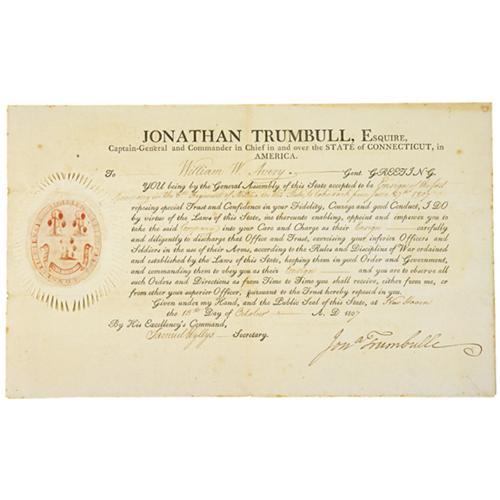 JONATHAN TRUMBULL, ESQUIRE,
Captain-General and Commander in Chief in and over the STATE of CONNECTICUT, in
AMERICA.
To William W. Avery Gent. GREETING.
YOU being by the General Assembly of this State accepted to be Ensign of the
Company in the Regiment of in this State
reposing special Trust and Confidence in your Fidelity, Courage and good Conduct, I DO
by virtue of the Laws of this State, me thereunto enabling, appoint and empower you to
take the said Company into your Care and Charge as their Ensign carefully
and diligently to discharge that Office and Trust, exercising your inferior Officers and
Soldiers in the use of their Arms, according to the Rules and Discipline of War ordained
and established by the Laws of this State, keeping them in good Order and Government,
and commanding them to obey you as their Ensign and you are to observe all
such Orders and Directions as from Time to Time you shall receive, either from me, or
from other your superior Officer, pursuant to the Trust hereby reposed in you.
Given under my Hand, and the Public Seal of this State, at New Haven
the 15th Day of October A. D. 1807
By His Excellency's Command,
Samuel Wyllys Secretary.
Jona Trumbull